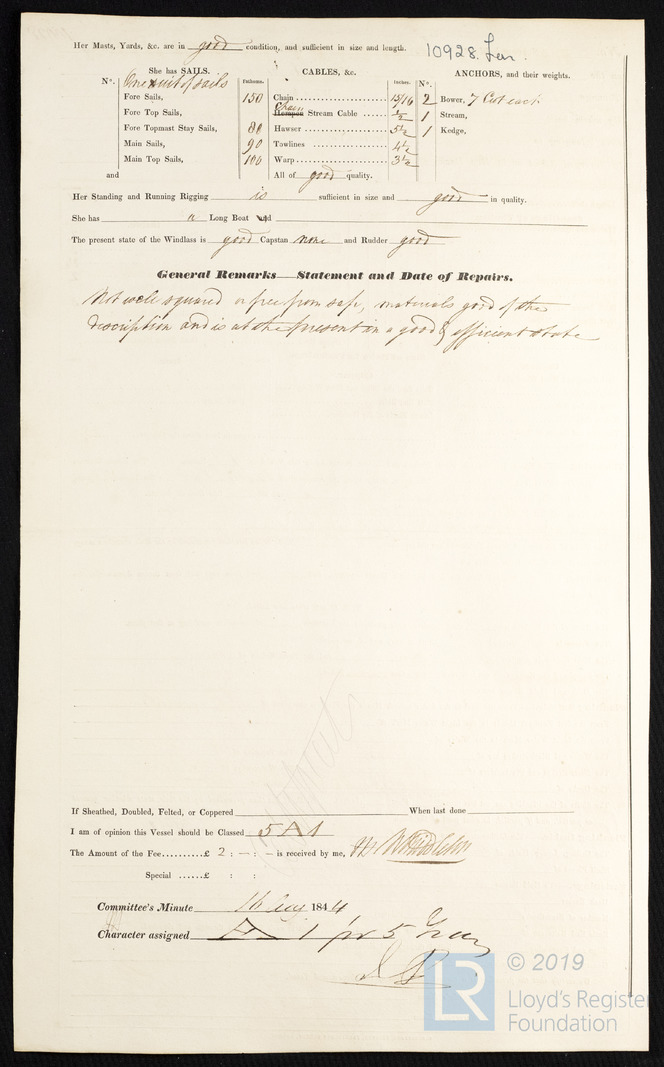 Her Masts, Yards, &c. are in good condition, and sufficient in size and length. 10928
She has SAILS. CABLES, &c. ANCHORS, and their weights.
Nº. One suit of sails Fathoms. Inches. Nº.
Fore Sails, 150 Chain 15/16 2 Bower, 7 Cwt each
Fore Top Sails, Chain Hempen Stream Cable 1/2 1 Stream,
Fore Topmast Stay Sails, 80 Hawser 5½ 1 Kedge,
Main Sails, 90 Towlines 4½
Main Top Sails, 100 Warp 3½
and All of good quality.
Her Standing and Running Rigging is sufficient in size and good in quality.
She has a Long Boat and
The present state of the Windlass is good Capstan none and Rudder good
General Remarks—Statement and Date of Repairs.
Not well squared or free from sap, materials good of the
description and is at the present in a good & efficient state
If Sheathed, Doubled, Felted, or Coppered When last done
I am of opinion this Vessel should be Classed 5 A 1
The Amount of the Fee.........£ 2 : — : — is received by me,
Special ......£ : :
Committee's Minute 16 Aug 1844
Character assigned A 1 for 5 Years
LR © 2019
Lloyd's Register
Foundation